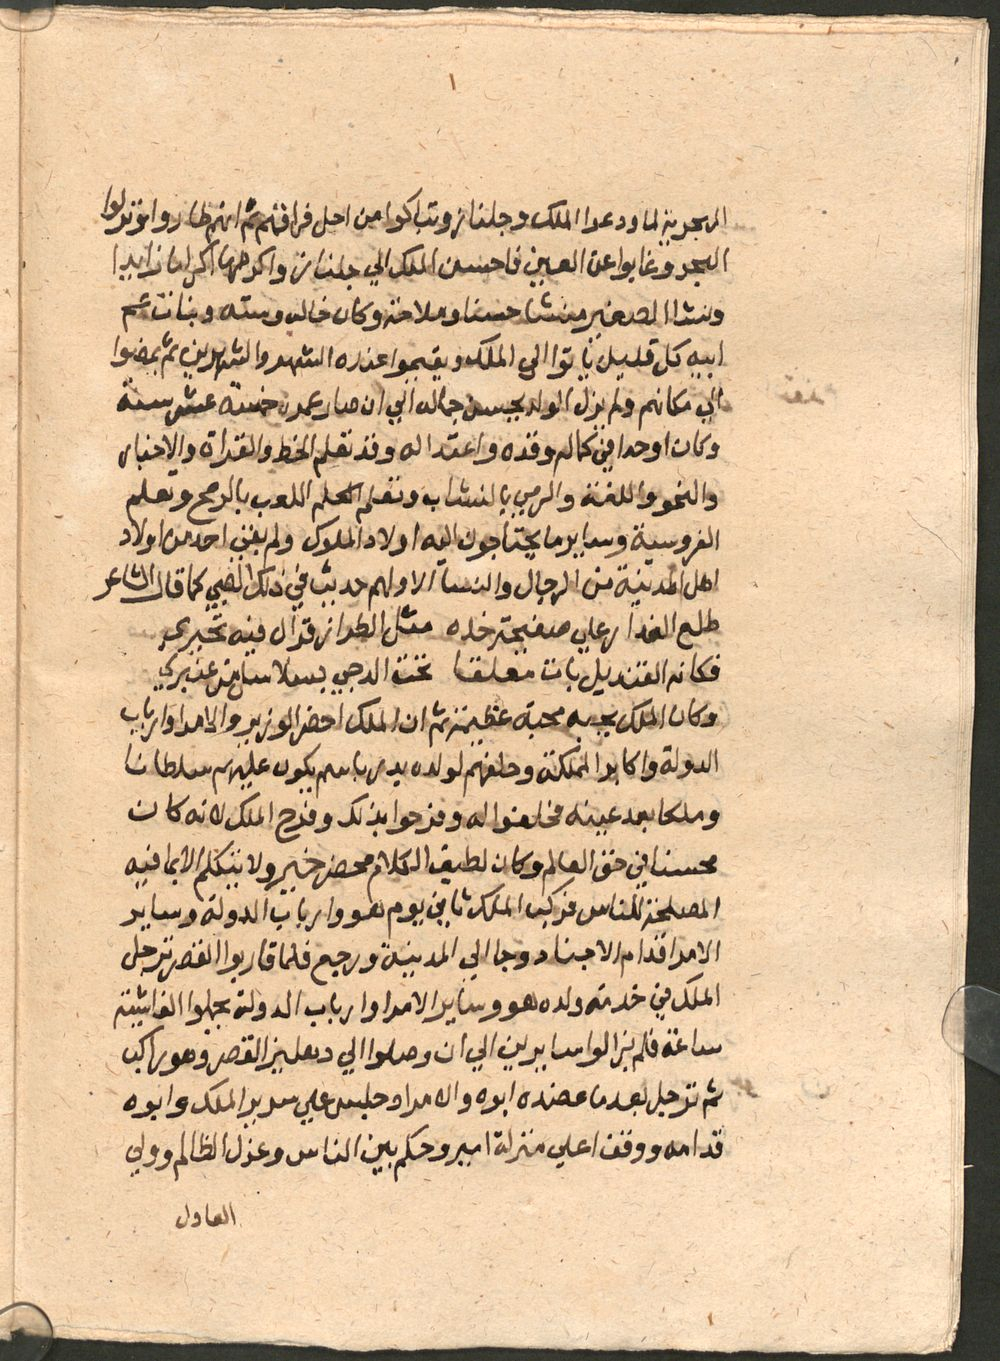 البحرية لما ودعوا الملك وجلناز وتباكوا من اجل فراقهم ثم انهم طاروا ونزلوا
البحر وغابوا عن العين فاحسن الملك الي جلناز واكرمها اكراما زايدا
ونشا الصغير منشا حسنا وملاحة وكان خاله وسته وبنات عم
ابيه كل قليل ياتوا الي الملك ويقيموا عنده الشهر والشهرين ثم يمضوا
الي مكانهم ولم يزل الولد يحسن جماله الي ان صار عمره خمسة عشر سنة
وكان اوحدا في كماله وقده واعتداله وقد تعلم الخط والقراة والاخبار
والنحو واللغة والرمي بالنشاب وتعلم اللعب بالرمح وتعلم
الفروسية وساير ما يحتاجون اليه اولاد الملوك ولم بقي احد من اولاد
اهل المدينة من الرجال والنسا الا ولهم حديث في ذلك الصبي كما قال الشاعر
طلع العذار علي صفيحة خده مثل الطراز فزال فيه تحيري
فكانه القنديل بات معلقا تحت الدجي بسلاسل من عنبري
وكان الملك يحبه محبة عظيمة ثم ان الملك احضر الوزير والامرا وارباب
الدولة واكابر المملكة وحلفهم لولده بدر باسم يكون عليهم سلطانا
وملكا بعد عينه فحلفوا له وفرحوا بذلك وفرح الملك لانه كان
محسنا في حق العالم وكان لطيف الكلام محضر خير ولا يتكلم الا بما فيه
المصلحة للناس فركب الملك ثاني يوم هو وارباب الدولة وساير
الامرا قدام الاجناد وجا الي المدينة ورجع فلما قاربوا القصر ترجل
الملك في خدمة ولده هو وساير الامرا وارباب الدولة يحملوا الغاشية
ساعة فلم يزالوا سايرين الي ان وصلوا الي دهليز القصر وهو راكب
ثم ترجل بعد ما عضده ابوه والامرا وجلس علي سرير الملك وابوه
قدامه ووقف اعلي منزلة امير وحكم بين الناس وعزل الظالم وولي
العادل